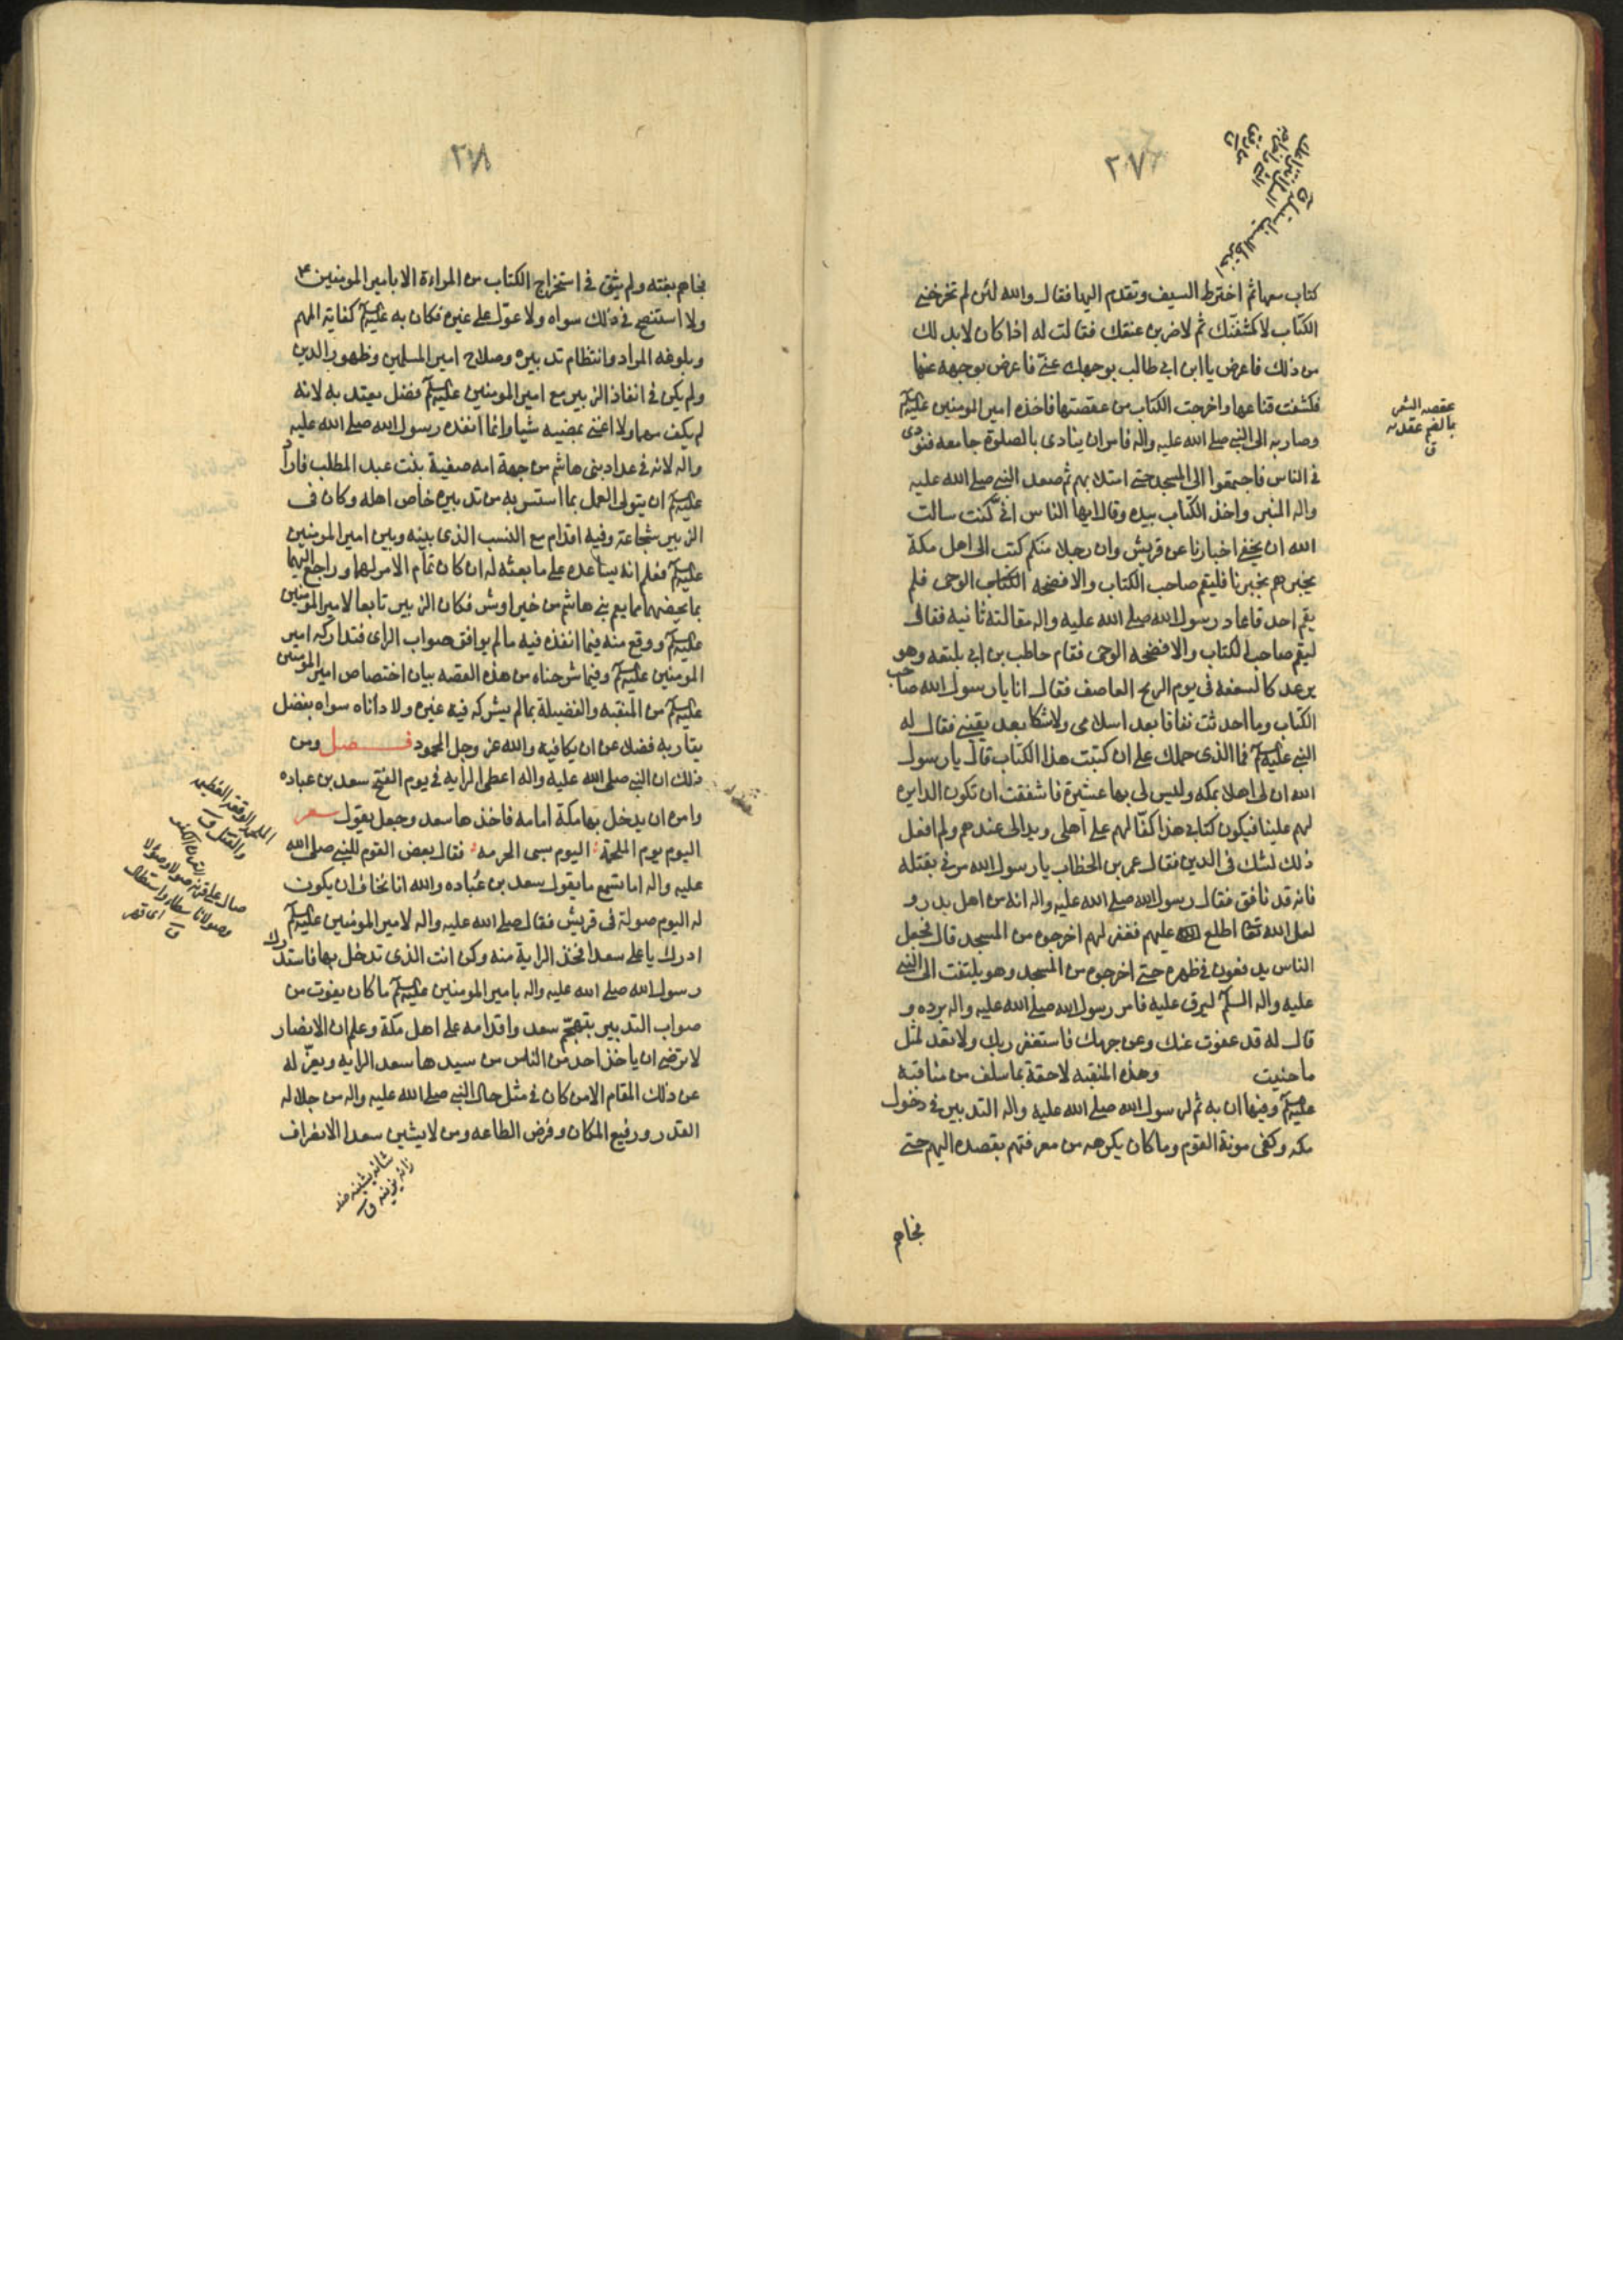 ٢٧٧
كتاب معها ثم اخترط السيف وتقدم اليها فقال والله لئن لم تخرجى
الكتاب لاكشفنك ثم لاضربن عنقك فقالت له اذا كان لابد لك
من ذلك فاعرض يا ابن ابى طالب بوجهك عنى فاعرض بوجهه عنها
فكشفت قناعها واخرجت الكتاب من عقصتها فاخذه امير المومنين عليه السلم
وصار به الى النبى صلى الله عليه واله فامر ان ينادى بالصلوة جامعه فنودى
فى الناس فاجتمعوا الى المسجد حتى امتلا بهم ثم صعد النبى صلى الله عليه
واله المنبر واخذ الكتاب بيده وقال ايها الناس انى كنت سالت
الله ان يخفى اخبارنا عن قريش وان رجلا منكم كتب الى اهل مكة
يخبرهم بخبرنا فليقم صاحب الكتاب والا فضحه الوحى فلم
يقم احد فاعاد رسول الله صلى الله عليه واله مقالته ثانيه فقال
ليقم صاحب الكتاب والا فضحه الوحى فقام حاطب بن ابى بلتعه وهو
يرعد كالسعفه فى يوم الريح العاصف فقال انا يا رسول الله صاحب
الكتاب وما احدثت نفاقا بعد اسلامى ولا شكا بعد يقينى فقال له
النبى عليه السلم فما الذى حملك على ان كتبت هذا الكتاب قال يا رسول
الله ان لى اهلا بمكه وليس لى بها عشيرة فاشفقت ان تكون الداير
لهم علينا فيكون كتابى هذا كفا لهم على اهلى ويدا لى عندهم ولم افعل
ذلك لشك فى الدين فقال عمر بن الخطاب يا رسول الله مرنى بقتله
فانه قد نافق فقال رسول الله صلى الله عليه واله انه من اهل بدر و
لعل الله تعا اطلع عليهم فغفر لهم اخرجوه من المسجد قال فجعل
الناس يدفعون فى ظهره حتى اخرجوه من المسجد وهو يلتفت الى النبى
عليه واله السلم ليرق عليه فامر رسول الله صلى الله عليه واله برده و
قال له قد عفوت عنك وعن جرمك فاستغفر ربك ولا تعد لمثل
ما جنيت وهذه المنقبه لاحقة بما سلف من مناقبه
عليه السلم وفيها ان به تم لرسول الله صلى الله عليه واله التدبير فى دخول
مكه وكفى مونة القوم وما كان يكرهه من معرفتهم بقصده اليهم حتى
فجاهم
عقصه الشعر
بالضم عقدته
ق
٢٧٨
فجاهم بغته ولم يثق فى استخراج الكتاب من المراءة الا بامير المومنين ع
ولا استنصح فى ذلك سواه ولا عول على غيره فكان به عليه السلم كفايته المهم
وبلوغه المراد وانتظام تدبيره وصلاح امير المسلمين وظهور الدين
ولم يكن فى انفاذ الزبير مع امير المومنين عليه السلم فضل يعتد به لانه
لم يكف مهما ولا اغنى بمضيه شيا وانما انفذه رسول الله صلى الله عليه
واله لانه فى عداد بنى هاشم من جهة امه صفية بنت عبد المطلب فاراد
عليه السلم ان يتولى العمل بما استسر به من تدبيره خاص اهله وكان فى
الزبير شجاعة وفيه اقدام مع النسب الذى بينه وبين امير المومنين
عليه السلم فعلم انه يساعده على ما بعثه له ان كان تمام الامر لهما وراجع اليهما
بما يخصهما مما يعم بنى هاشم من خير او شر فكان الزبير تابعا لامير المومنين
عليه السلم ووقع منه فيما انفذه فيه ما لم يوافق صواب الراى فتداركه امير
المومنين عليه السلم وفيما شرحناه من هذه القصه بيان اختصاص امير المومنين
عليه السلم من المنقبه والفضيلة بما لم يشركه فيه غيره ولا داناه سواه بفضل
يقاربه فضلا عن ان يكافيه والله عز وجل المحمود فصل ومن
ذلك ان النبى صلى الله عليه واله اعطى الرايه فى يوم الفتح سعد بن عباده
وامره ان يدخل بها مكة امامه فاخذها سعد وجعل يقول شعر
اليوم يوم الملحمة اليوم سبى الحرمه فقال بعض القوم للنبى صلى الله
عليه واله اما تسمع ما يقول سعد بن عباده والله انا نخاف ان يكون
له اليوم صولة فى قريش فقال صلى الله عليه واله لامير المومنين عليه السلم
ادرك يا على سعدا فخذ الراية منه وكن انت الذى تدخل بها فاستدرك
رسول الله صلى الله عليه واله بامير المومنين عليه السلم ما كان يفوت من
صواب التدبير بتهجم سعد واقدامه على اهل مكة وعلم ان الانصار
لا ترضى ان ياخذ احد من الناس من سيدها سعد الرايه ويعزله
عن ذلك المقام الا من كان فى مثل حال النبى صلى الله عليه واله من جلاله
القدر ورفيع المكان وفرض الطاعه ومن لا يشين سعدا الانصراف
الملحمة الوقعة العظيمه
والقتل ق
صال على قرنه صولا وصولانا سطا واستطال
شانه يشينه ضد
زانه يزينه ق